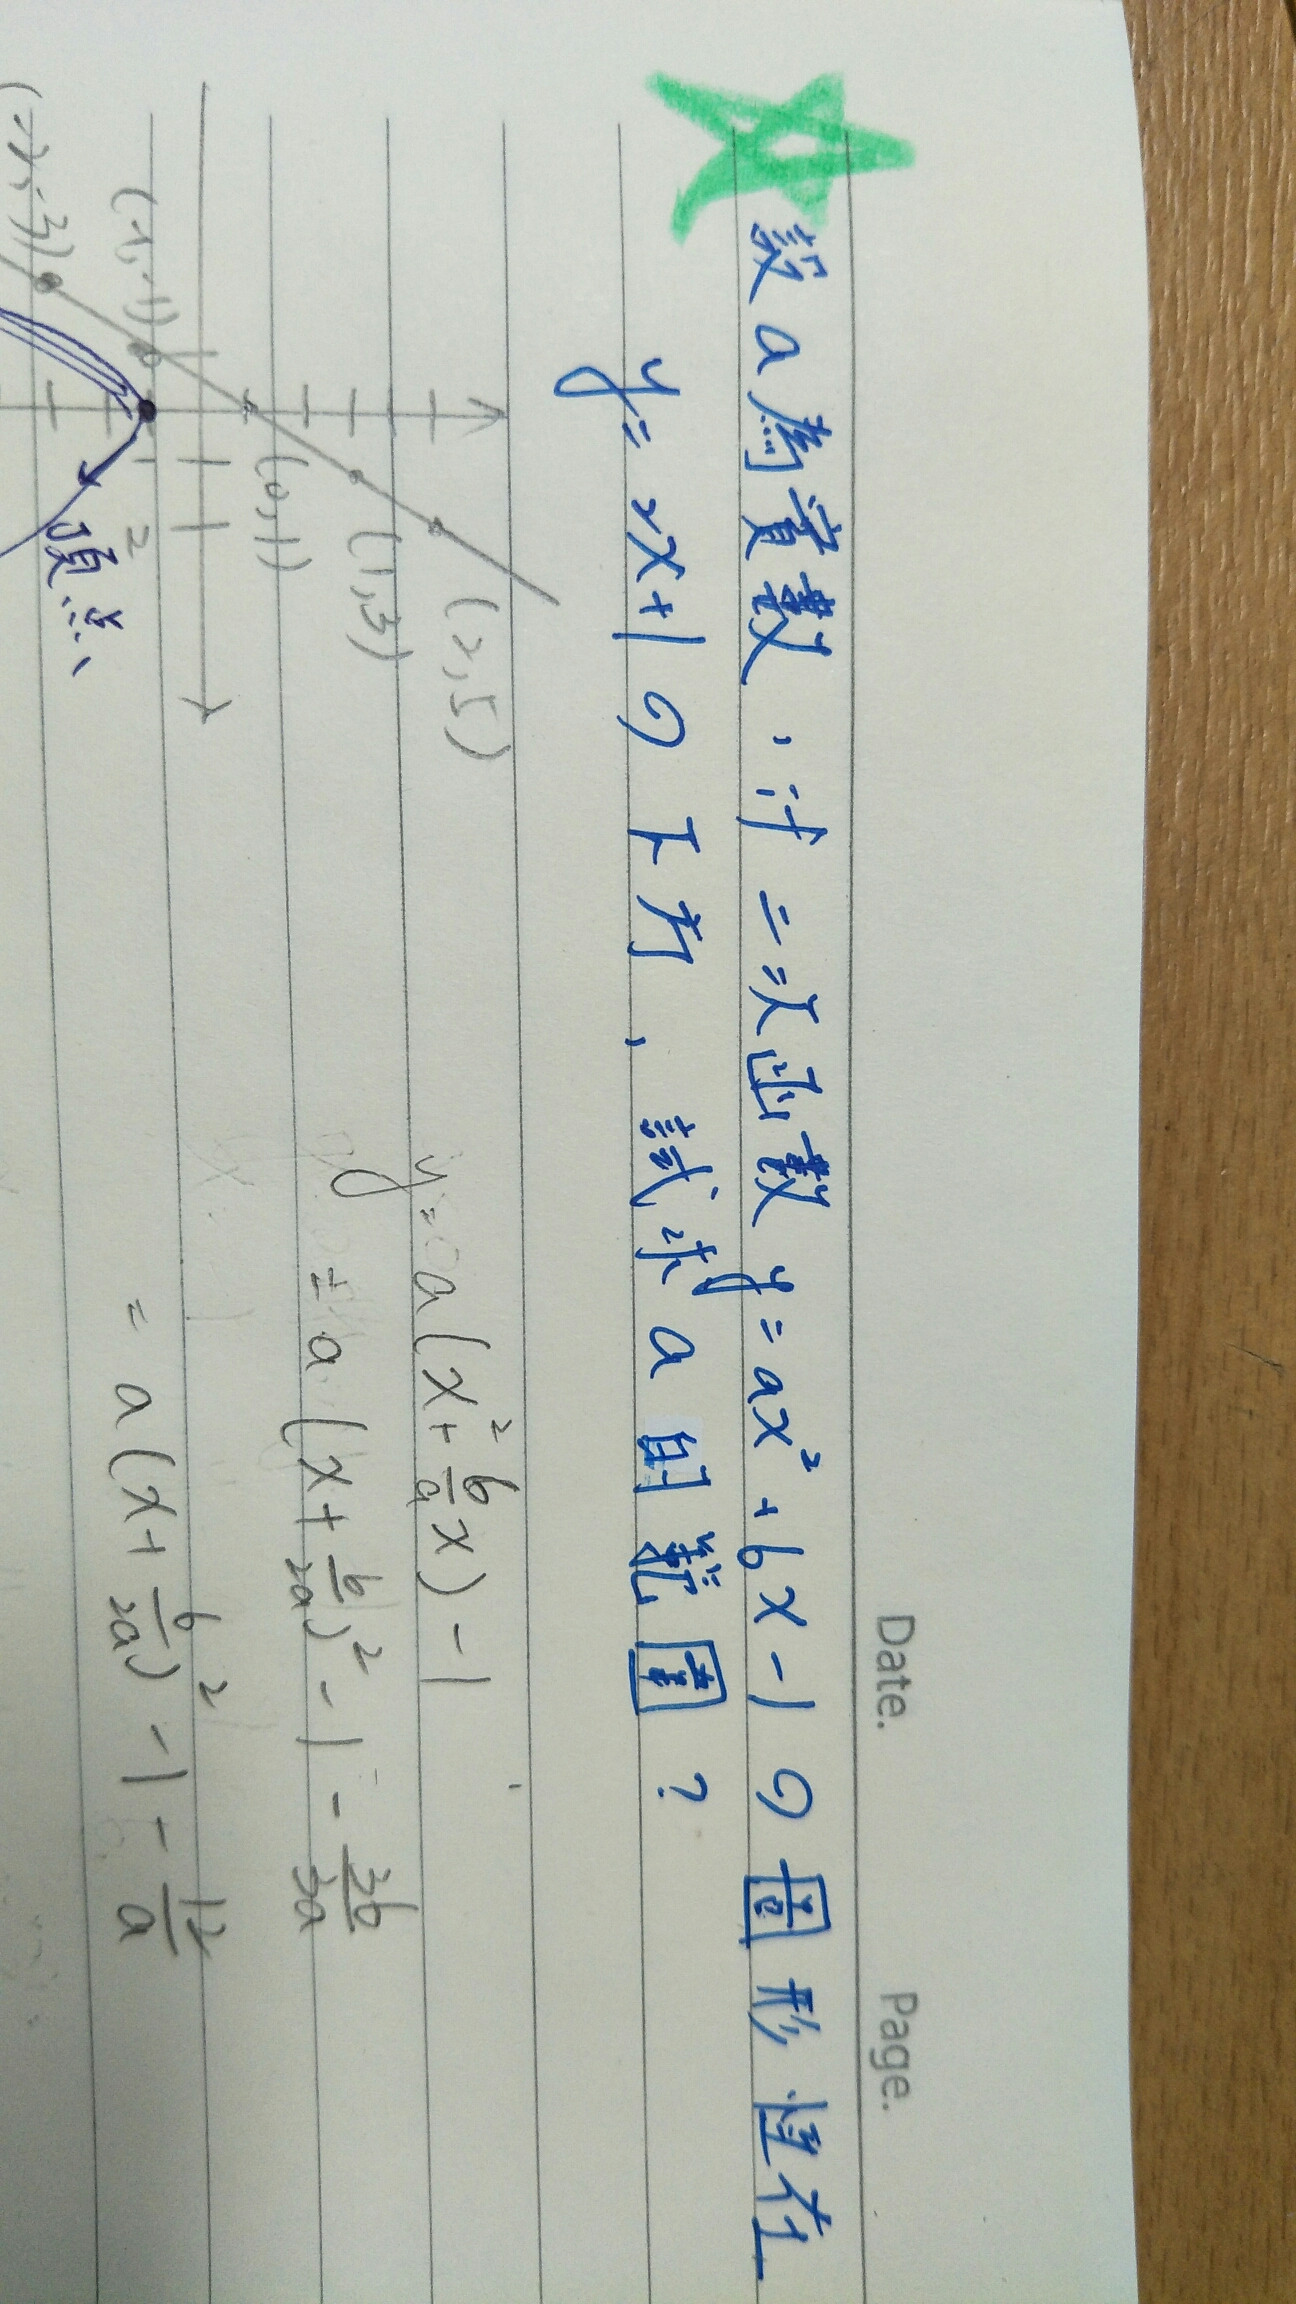 Date. Page.
設a為實數，if 二次函數 y=ax²+6x-1 の圖形恆在
y=2x+1 の下方、試求a的範圍？
(2,5)
(1,3)
(0,1)
(-1,-1)
(-2,-3)
2
頂点
y=a(x²+6/a x)-1
y=a(x+6/2a)²-1-36/3a
=a(x+6/2a)²-1-12/a